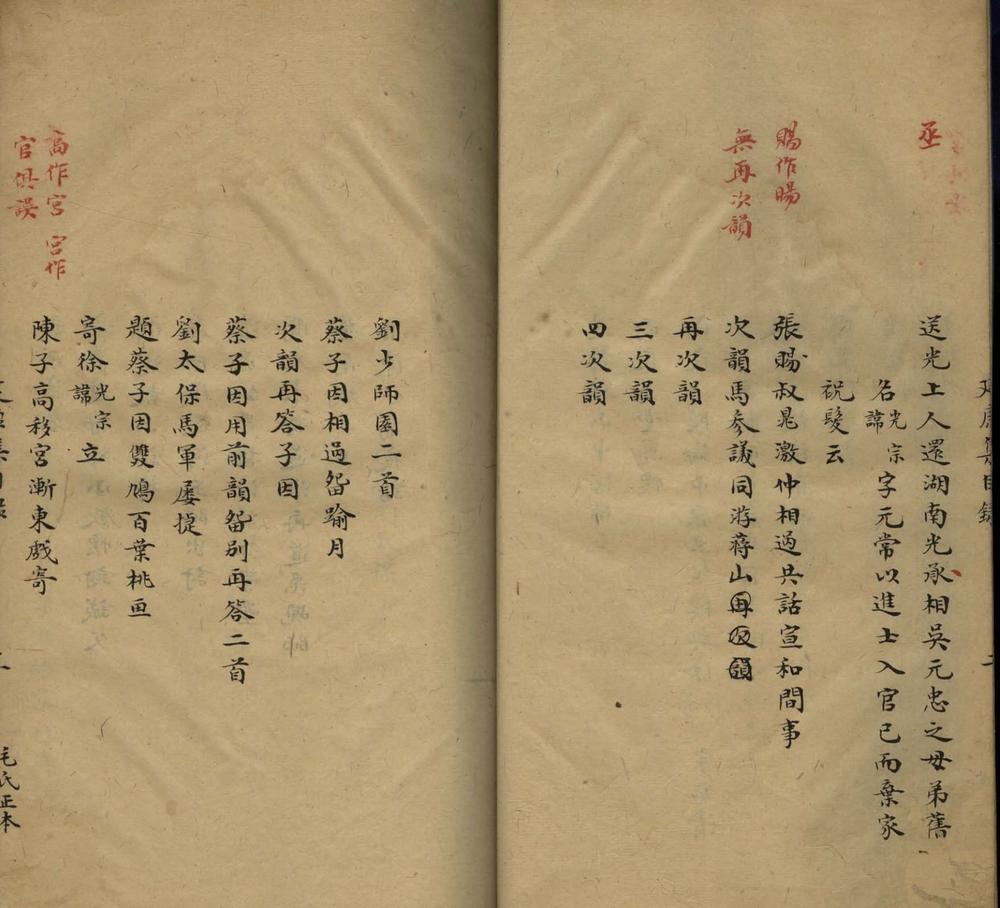 集目錄
二
丞
送光上人還湖南光承相吳元忠之母弟舊
名光宗諱字元常以進士入官已而棄家
祝髮云
賜作暘
張賜叔晁激仲相過共話宣和間事
無再次韻
次韻馬參議同游蔣山再次韻
再次韻
三次韻
四次韻
劉少師園二首
蔡子因相過畱踰月
次韻再答子因
蔡子因用前韻畱別再答二首
劉太保馬軍屢捷
題蔡子因雙鳩百葉桃画
寄徐光宗諱立
高作宮 宮作
官俱誤
陳子高移宮漸東戲寄
毛氏正本